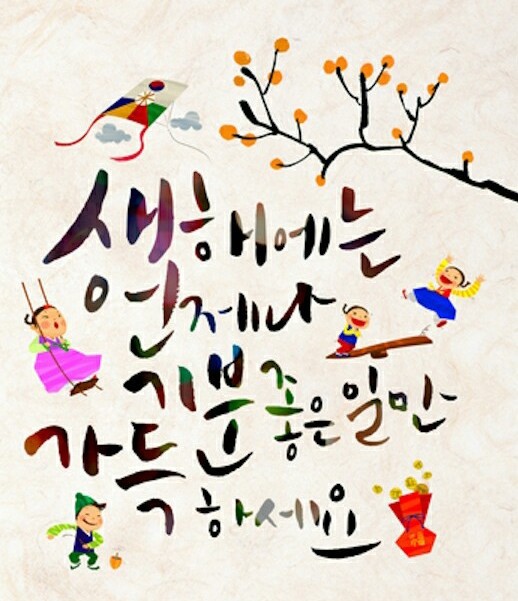 새해에는
언제나
기분 좋은 일만
가득
하세요